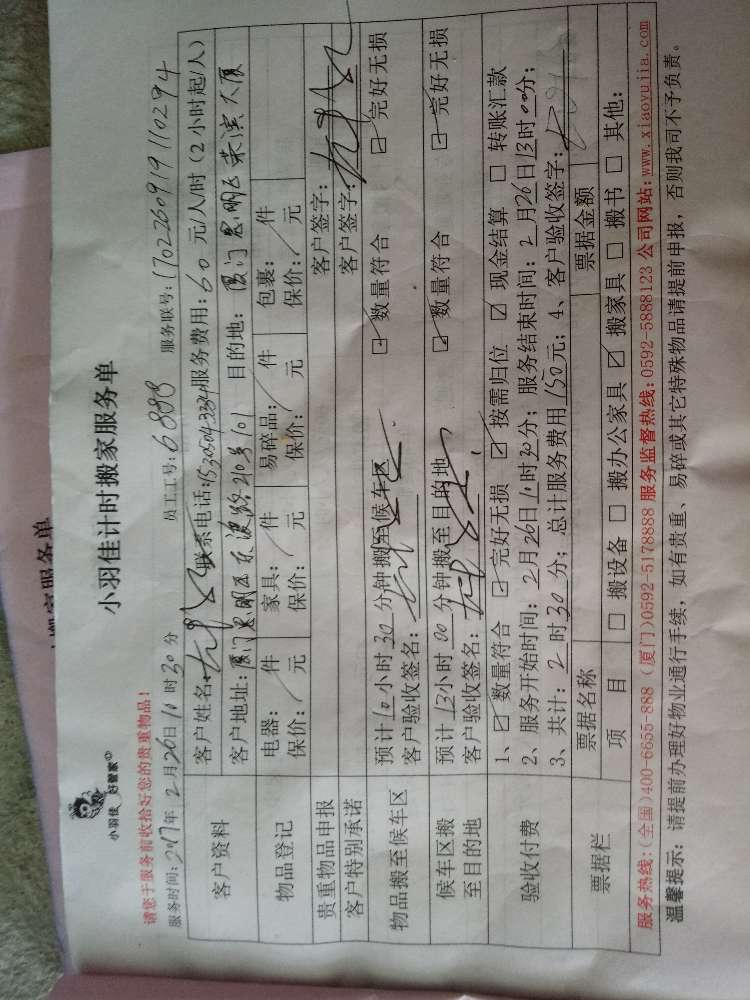 搬家服务单
小羽佳 好管家
小羽佳计时搬家服务单
请您于服务前收拾好您的贵重物品!
服务时间: 2017年 2月26日 10时30分 员工工号: 6888 服务联号: 1702260919110294
客户资料 客户姓名: 联系电话: 服务费用: 60 元/人/时 (2小时起/人)
客户地址: 厦门思明区东渡路210号101 目的地: 厦门思明区荣滨大厦
物品登记 电器: / 件 家具: / 件 易碎品: / 件 包裹: / 件
保价: / 元 保价: / 元 保价: / 元 保价: / 元
贵重物品申报 客户签字:
客户特别承诺 客户签字:
物品搬至候车区 预计10小时30分钟搬至候车区 ☑ 数量符合 ☑ 完好无损
客户验收签名:
候车区搬至目的地 预计13小时00分钟搬至目的地 ☑ 数量符合 ☑ 完好无损
客户验收签名:
验收付费 1、☑ 数量符合 ☑ 完好无损 ☑ 按需归位 ☑ 现金结算 □ 转账汇款
2、服务开始时间: 2月26日 时30分; 服务结束时间: 2月26日13时00分;
3、共计: 2时30分; 总计服务费用150元; 4、客户验收签字:
票据栏 票据名称 票据金额
项目 □ 搬设备 □ 搬办公家具 ☑ 搬家具 □ 搬书 □ 其他:
服务热线: (全国)400-6655-888 (厦门)0592-5178888 服务监督热线: 0592-5888123 公司网站: www.xiaoyujia.com
温馨提示: 请提前办理好物业通行手续, 如有贵重、易碎或其它特殊物品请提前申报, 否则我司不予负责。